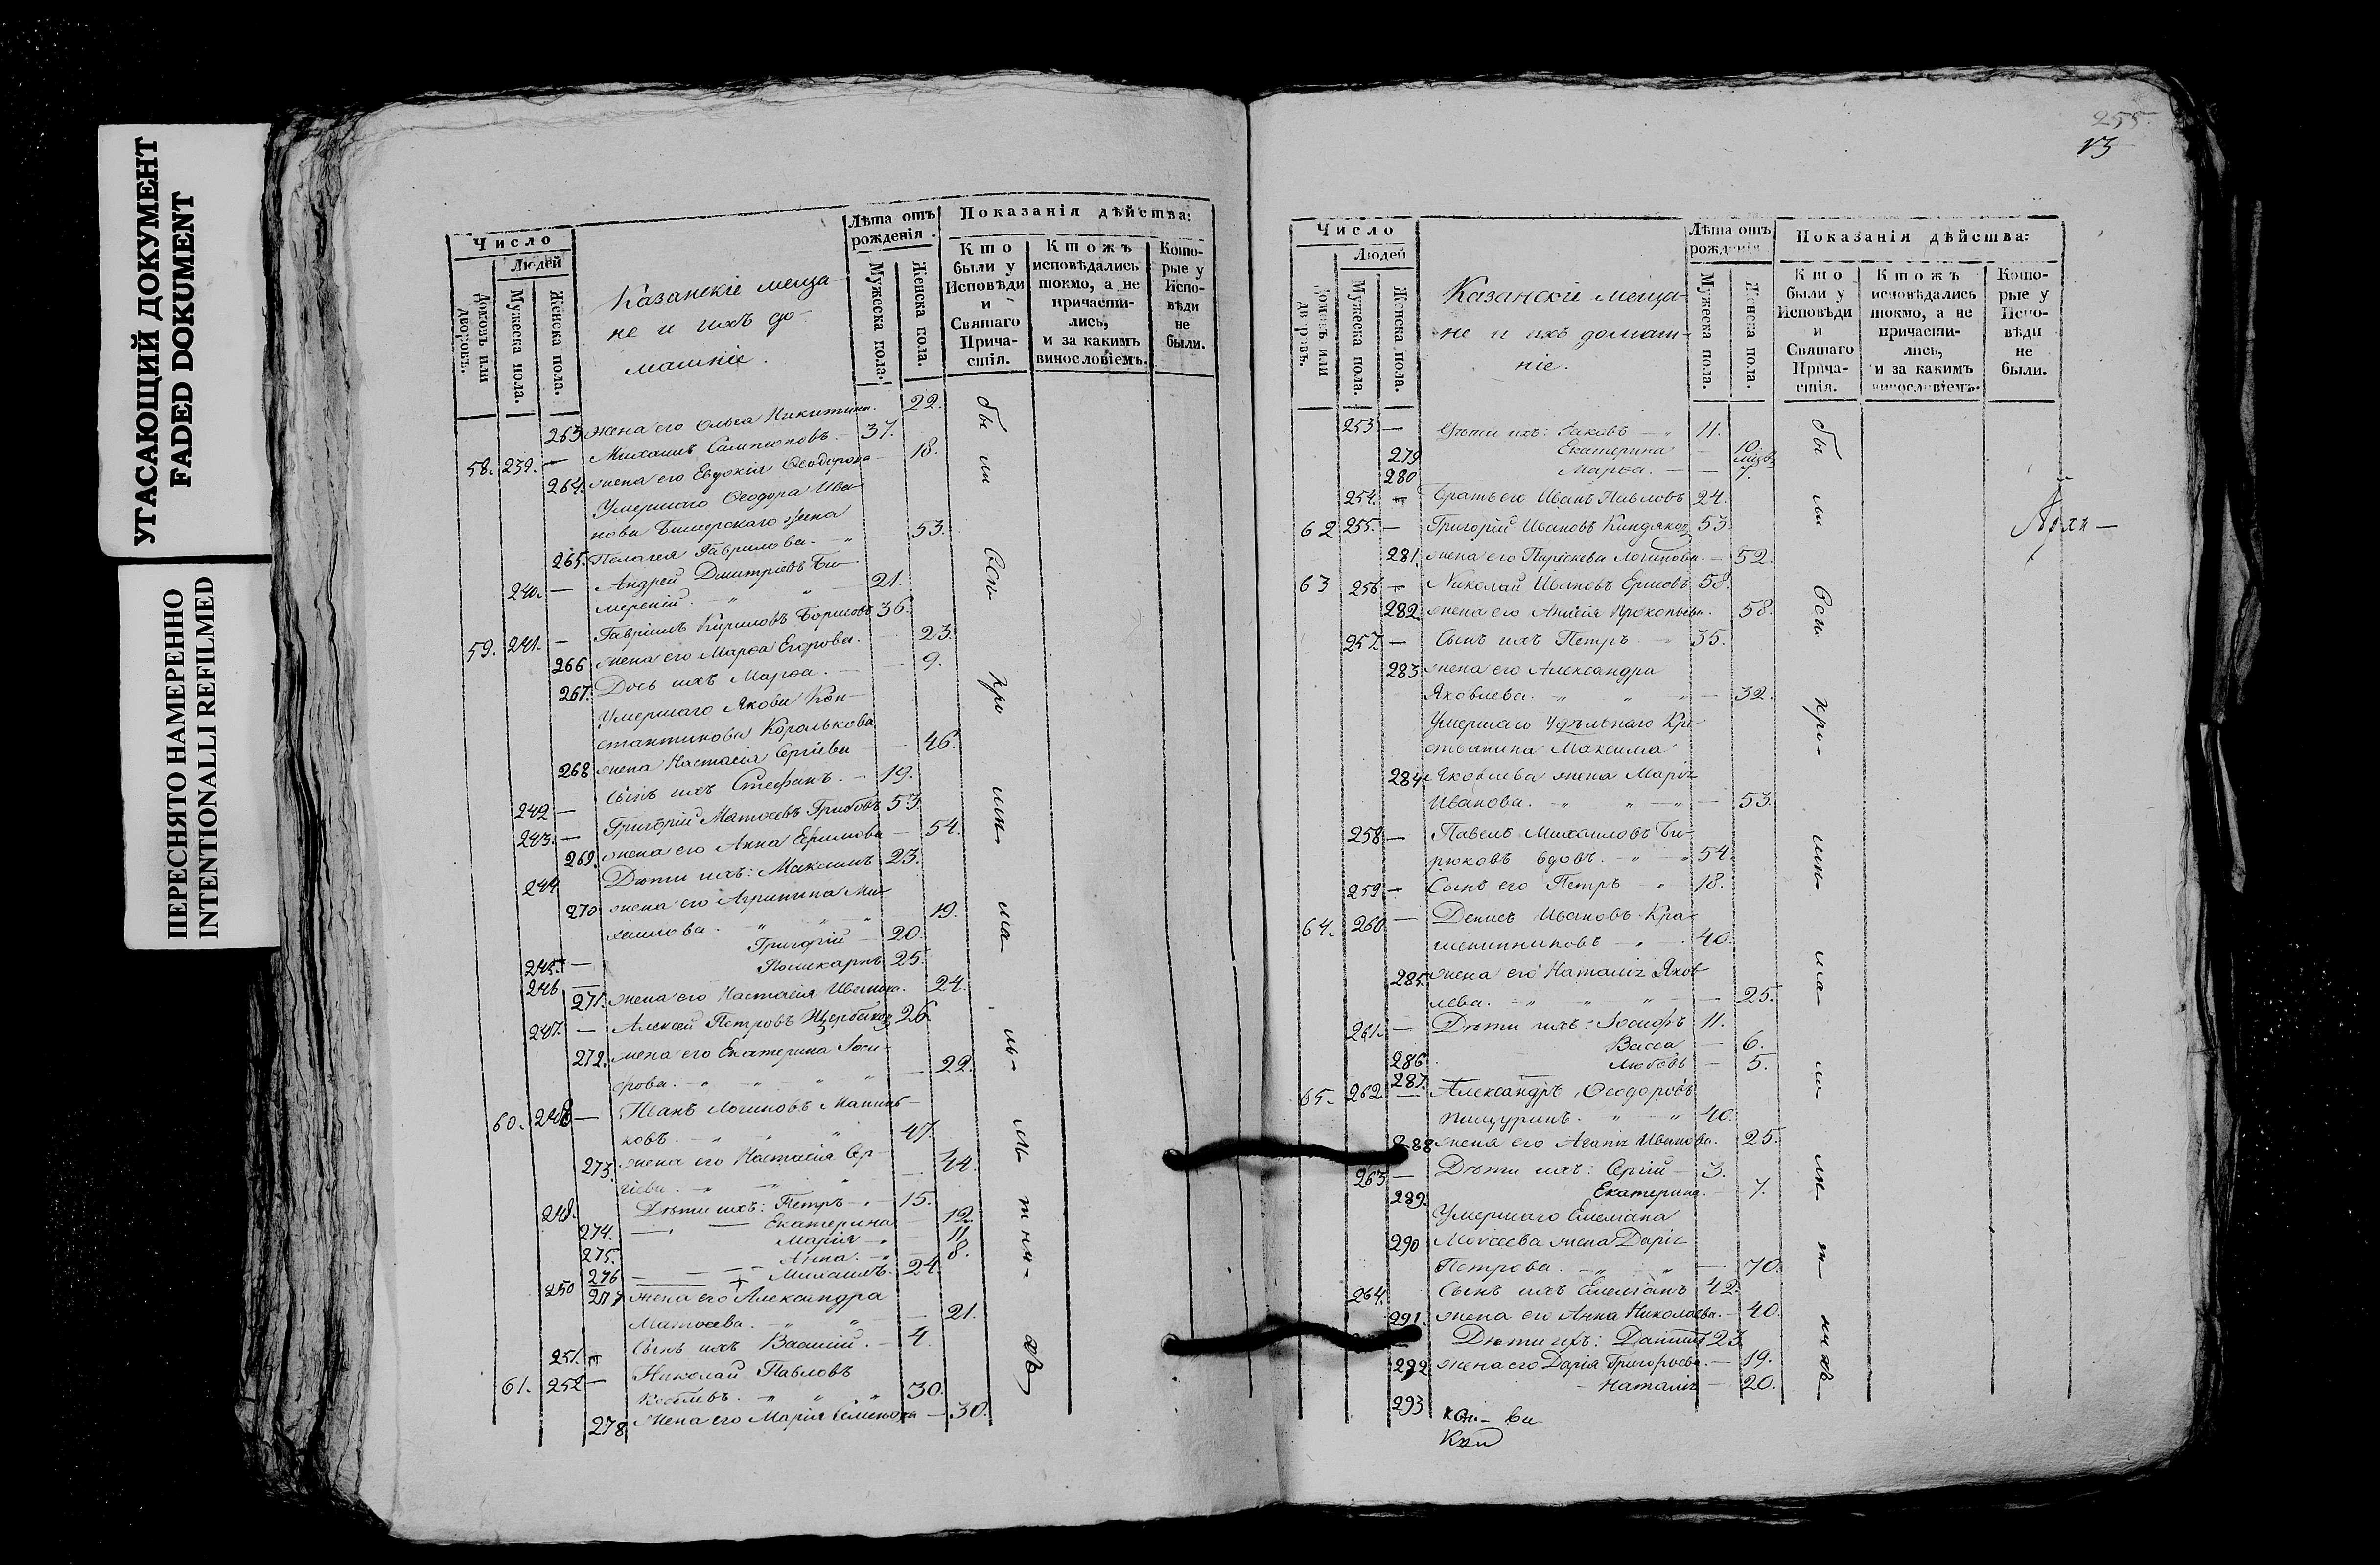 УГАСАЮЩИЙ ДОКУМЕНТ
FADED DOKUMENT
ПЕРЕСНЯТО НАМЕРЕННО
INTENTIONALLI REFILMED
Число
Людей
Домовъ или дворовъ.
Мужеска пола.
Женска пола.
Казанскіе меща-
не и ихъ до-
машніе.
Лѣта отъ рожденія.
Мужеска пола.
Женска пола.
Показанія дѣйства:
Кто были у Исповѣди и Святаго Прича-стія.
Ктожъ исповѣдались токмо, а не причасти-лись, и за какимъ винословіемъ.
Кото-рые у Испо-вѣди не были.
263 жена его Ольга Никитина. 22.
58. 239. — Михаилъ Сампсоновъ. — 37.
264. жена его Евдокія Ѳеодорова — 18.
Умершаго Ѳеодора Ива-
нова жена
265. Пелагея Гаврилова. — 53.
240. — Андрей Дмитріевъ Би-
мерскій. 21.
59. 241. — Гавріилъ Кириловъ Борисовъ 36.
266 жена его Марѳа Егорова. — 23.
267. Дочь ихъ Марѳа. — 9.
Умершаго Якова Кон-
стантинова Королькова
268 жена Настасія Сергіева — 46.
242 — Сынъ ихъ Стефанъ. — 19.
243. — Григорій Матѳеевъ Грибовъ 53.
269. жена его Анна Ефимова — 54.
244 Дѣти ихъ: Максимъ 23.
270 жена его Агрипина Ми-
хаилова. 19.
245. — Григорій — 20.
246 — Поликарпъ 25.
271. жена его Настасія Иванова. 24.
247. — Алексѣй Петровъ Щербаковъ 26.
272. жена его Екатерина Іоси-
фова. — 22.
60. 248 — Иванъ Логиновъ Матинс-
ковъ. 47.
273. жена его Настасія Сер-
гіева. — 44.
248. Дѣти ихъ: Петръ — 15.
274. — Екатерина — 12.
275. Марія — 11.
276 Анна. — 8.
250 Михаилъ. 24.
277 жена его Александра
Матѳеева. — 21.
251. Сынъ ихъ Василій. — 4.
61. 252 — Николай Павловъ
30.
278 Жена его Марія Семенова — 30.
бы ли Всѣ
255.
Число
Людей
Домовъ или дворовъ.
Мужеска пола.
Женска пола.
Казанскіе меща-
не и ихъ домаш-
ніе.
Лѣта отъ рожденія
Мужеска пола.
Женска пола.
Показанія дѣйства:
Кто были у Исповѣди и Святаго Прича-стія.
Ктожъ исповѣдались токмо, а не причасти-лись, и за какимъ винословіемъ.
Кото-рые у Испо-вѣди не были.
253 — Дѣти ихъ: Іаковъ — 11.
279 Екатерина — 10.
280 Марѳа. — — 7.
254. Братъ его Иванъ Павловъ 24.
62 255. — Григорій Ивановъ Киндяковъ 53.
281. жена его Параскева Логинова. — 52.
63 256 — Николай Ивановъ Ершовъ 58.
282. жена его Анисія Прокопьева. 58.
257. — Сынъ ихъ Петръ — 35.
283 жена его Александра
Яковлева. — 32.
Умершаго Удѣльнаго Кре-
стьянина Максима
284. Яковлева жена Марія
Иванова. — 53.
258 — Павелъ Михаиловъ Би-
рюковъ вдовъ. 54.
259 — Сынъ его Петръ 18.
64. 260 — Денисъ Ивановъ Кра-
шенинниковъ — 40.
285. жена его Наталія Яков-
лева. — 25.
261. — Дѣти ихъ: Іосифъ 11.
286 Васса — 6.
287. Любовь — 5.
65. 262 — Александръ Ѳеодоровъ
Пищуринъ. 40.
288 жена его Агапія Иванова. 25.
263 — Дѣти ихъ: Сергій — 3.
289. Екатерина. 7.
Умершаго Емеліана
290 Моисеева жена Дарія
Петрова. — 70.
264. Сынъ ихъ Емеліанъ 42.
291. жена его Анна Николаева. — 40.
Дѣти ихъ: Даніилъ 23.
292 жена его Дарія Григорьева. — 19.
293 Наталія — 20.
бы ли Всѣ